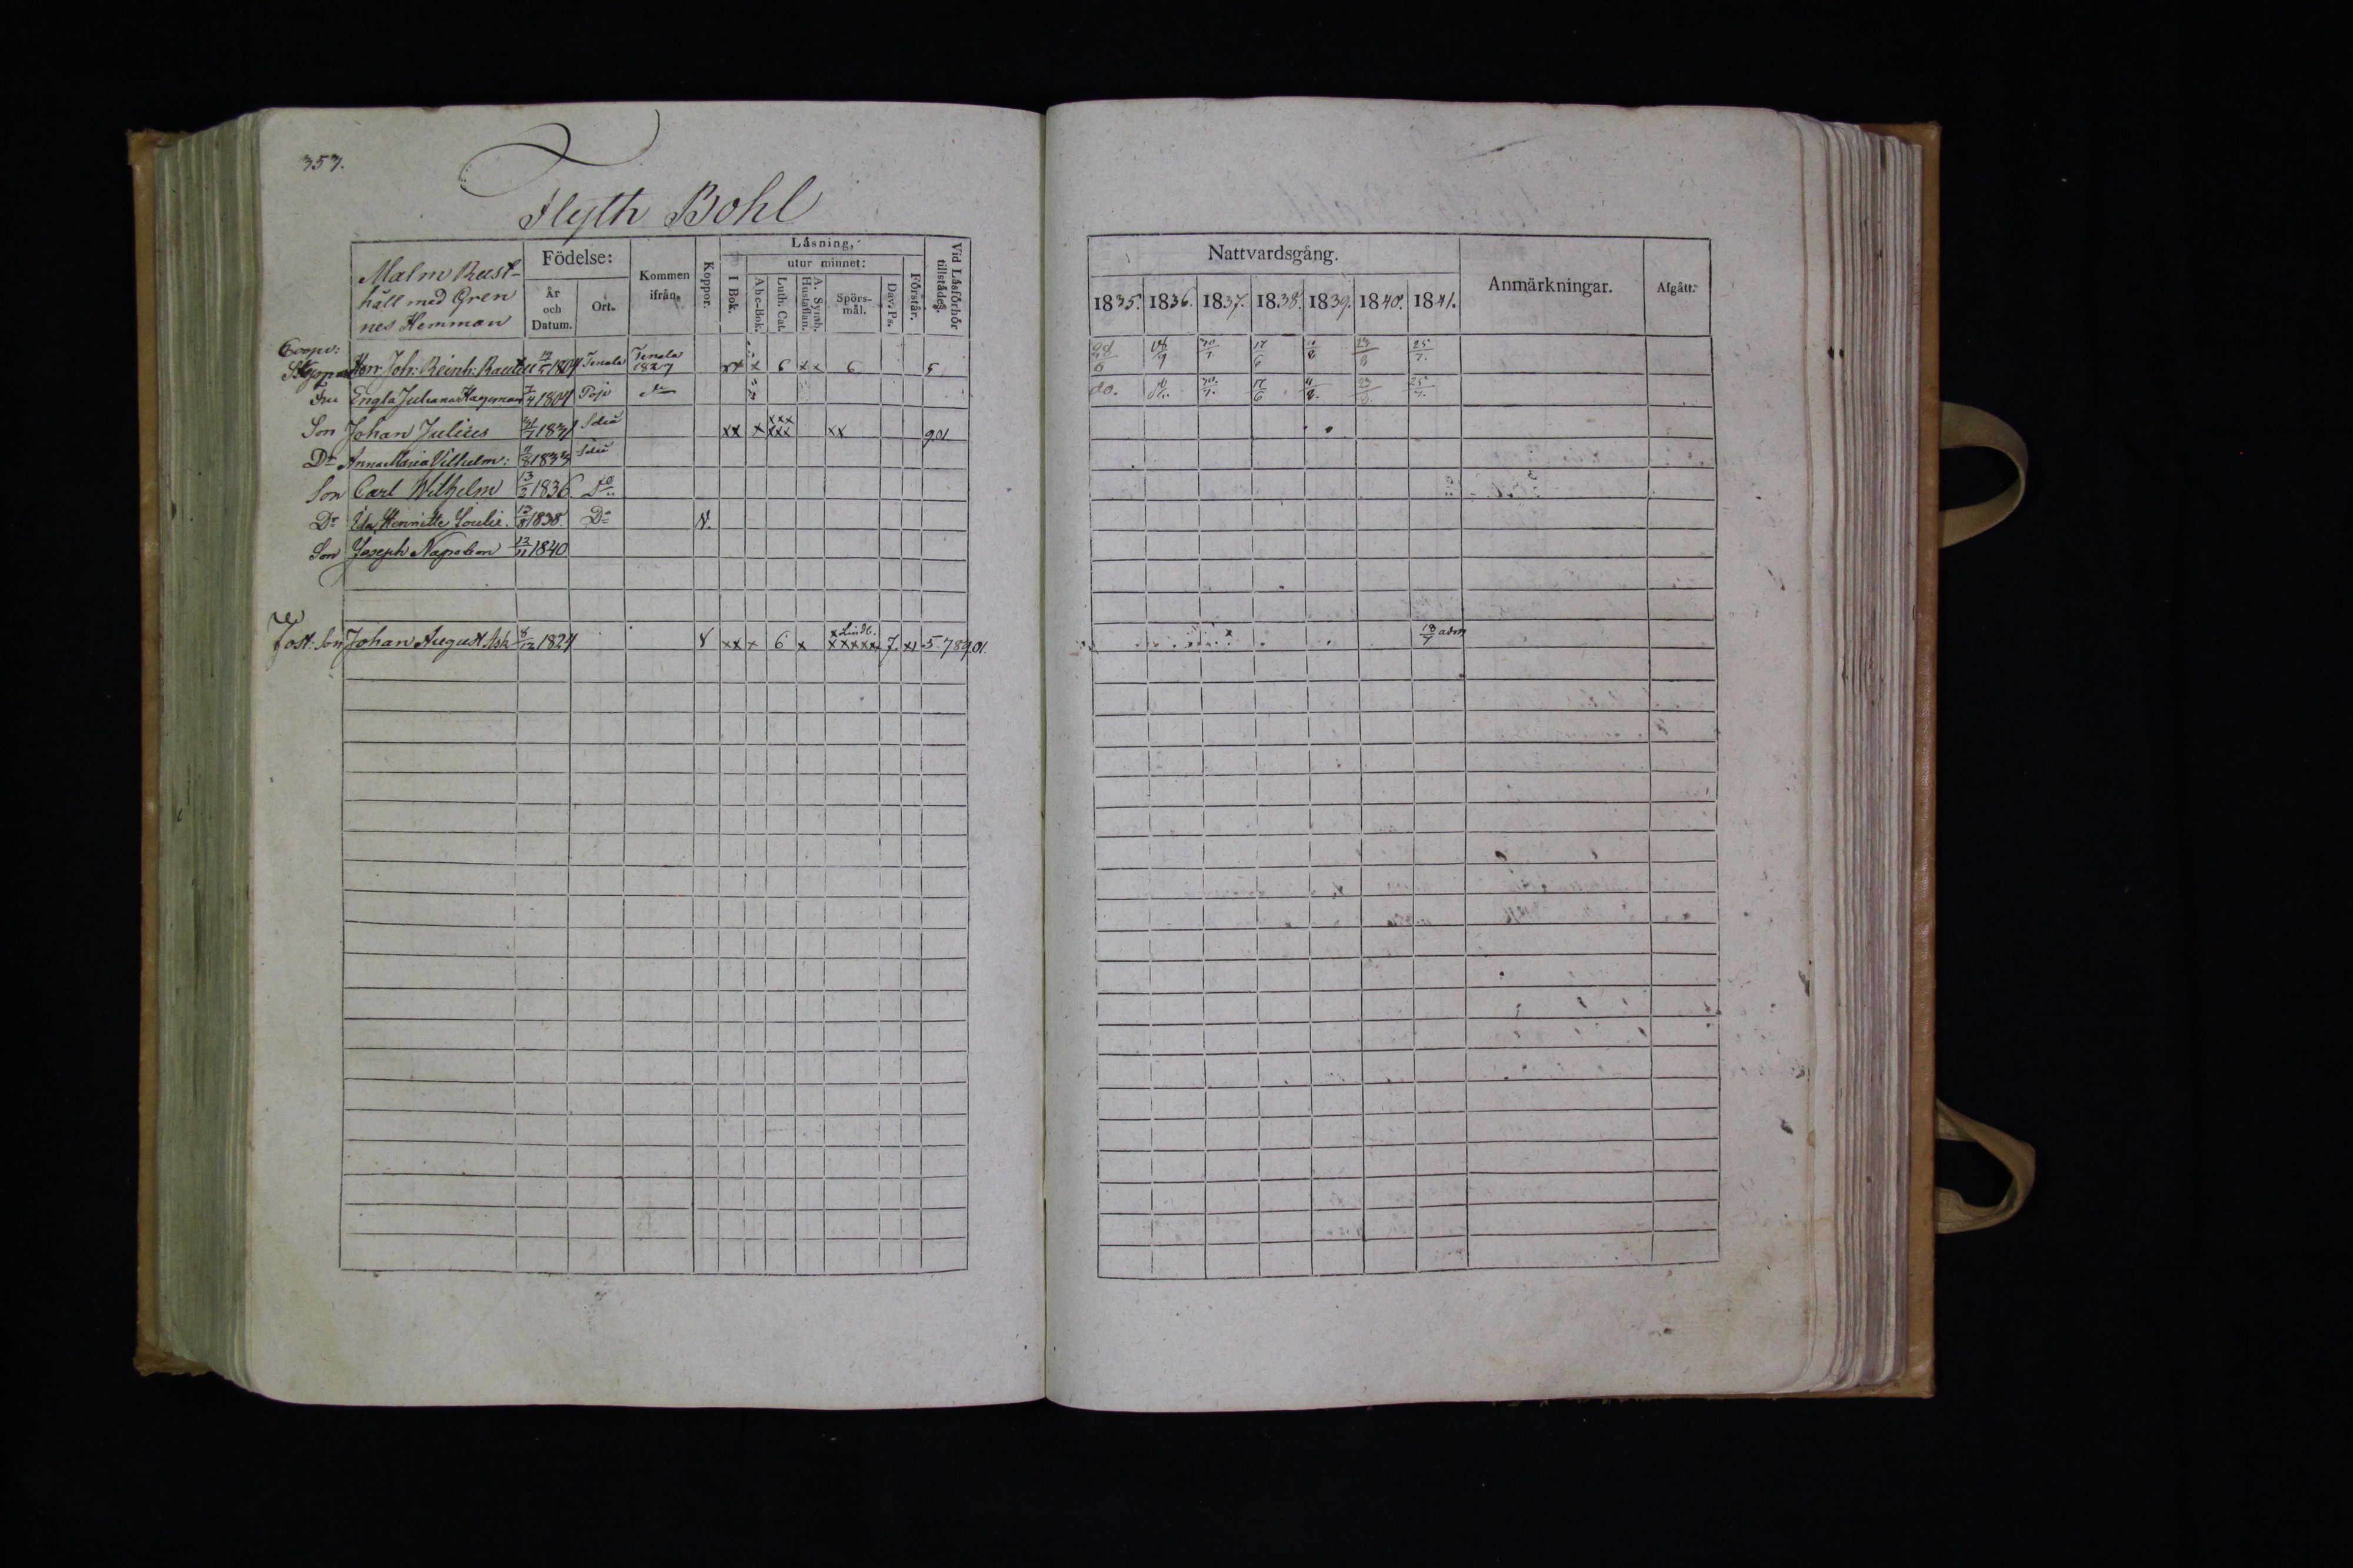 353.
Flyth Bohl
Malm Rust-
håll med Gren
nes Hemman
Födelse:
År
och
Datum.
Ort.
Kommen
ifrån.
Koppor.
Läsning,
utur minnet:
I Bok.
Abc-Bok.
Luth. Cat.
A. Symb.
Hustaflan.
Spörs-
mål.
Dav. Ps.
Förstår.
Vid Läsförhör
tillstädes.
Herr Joh: Reinh: 1804 Tenala Tenala 1827 xx x 6 x x 6 5
Fru Engla Juliana Hagerman 7/4 1804 Pojo
Son Johan Julius 1831 xx x xxx xxx xx 9.01
Dr Anna Maria Vilhelm: 1833
Son Carl Wilhelm 13/2 1836 Do
Dr Ida Henriette Lovise. 1838. Do
Son Joseph Napoleon 13/11 1840
Fost: Son Johan August Ask 8/12 1824 xx x 6 x x Lindb. xxxxx 7. xx 5.789.01.
Nattvardsgång.
1835. 1836. 1837. 1838. 1839. 1840. 1841.
Anmärkningar.
Afgått.
17/6 23/8 25/7.
do. 17/6 23/8. 25/7.
18/7 adm